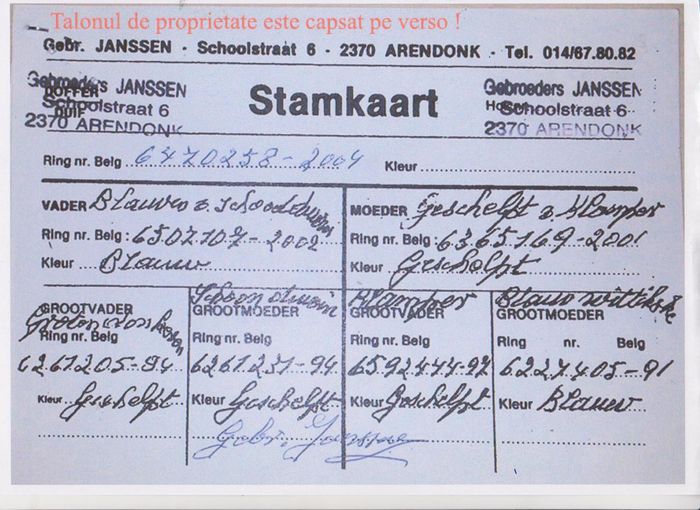 Talonul de proprietate este capsat pe verso !
Gebr. JANSSEN - Schoolstraat 6 - 2370 ARENDONK - Tel. 014/67.80.82
Gebroeders JANSSEN
DOFFER
Schoolstraat 6
DUIF
2370 ARENDONK
Stamkaart
Gebroeders JANSSEN
Schoolstraat 6
2370 ARENDONK
Ring nr. Belg 6470258-2004 Kleur
VADER Blauwe v.
Ring nr. Belg : 6507107-2002
Kleur Blauw
MOEDER Geschelpt v. Klamper
Ring nr. Belg : 6365169-2001
Kleur Geschelpt
GROOTVADER
Ring nr. Belg
6261205-94
Kleur Geschelpt
Schoon duivin
GROOTMOEDER
Ring nr. Belg
6261231-94
Kleur Geschelpt
Klamper
GROOTVADER
Ring nr. Belg
6592444-97
Kleur Geschelpt
Blauw
GROOTMOEDER
Ring nr. Belg
6227405-91
Kleur Blauw
Gebr. Janssen